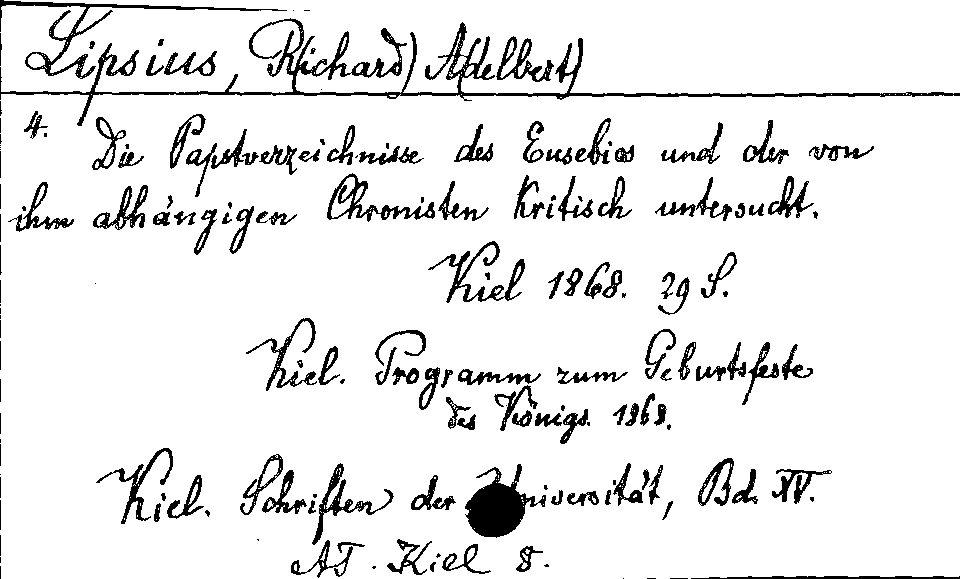 Lipsius, R(ichard) A(delbert)
4. Die Papstverzeichnisse des Eusebios und der von
ihm abhängigen Chronisten kritisch untersucht.
Kiel 1868. 29 S.
Kiel. Programm zum Geburtsfeste
des Königs. 1868.
Kiel. Schriften der Universität, Bd. XV.
AT. Kiel 8.